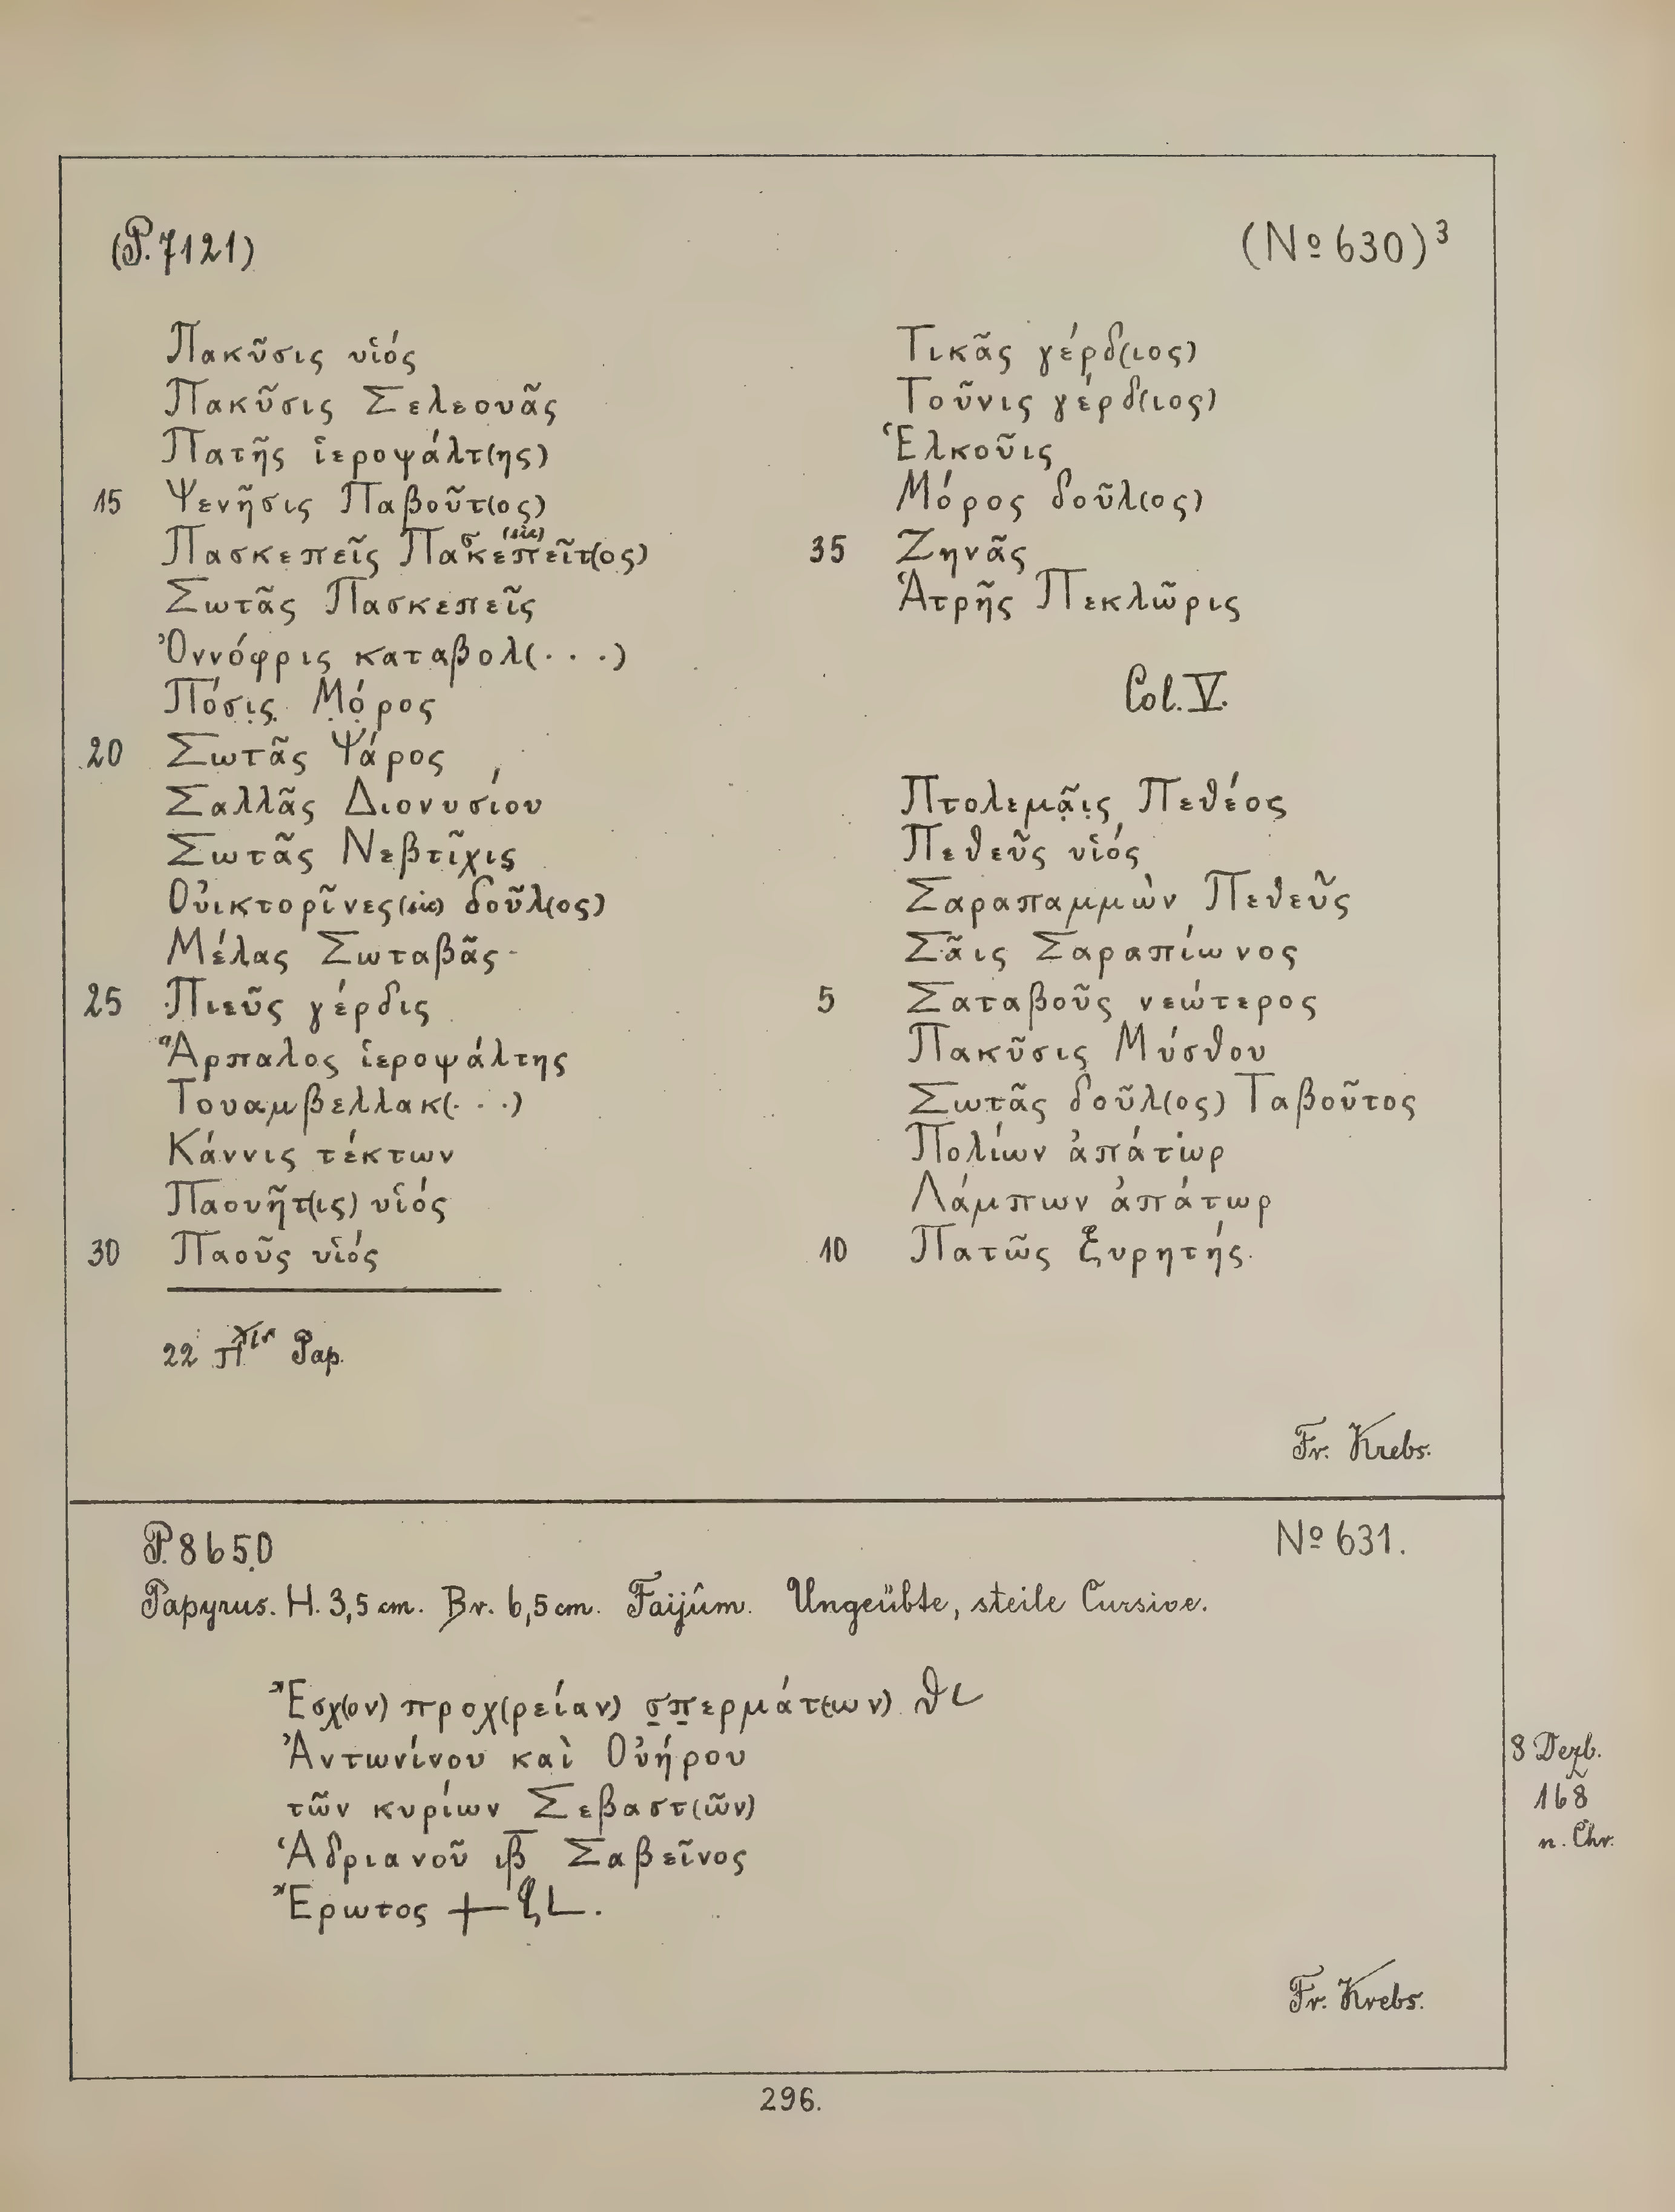 (P. 7121)
(No 630)³
Πακῦσις υἱός
Πακῦσις Σελεουᾶς
Πατῆς ἱεροψάλτ(ης)
15 Ψενῆσις Παβοῦτ(ος)
Πασκεπεῖς Πασκεπεῖτ(ος) (sic)
Σωτᾶς Πασκεπεῖς
Ὀννόφρις καταβολ(...)
Πόσις Μόρος
20 Σωτᾶς Ψάρος
Σαλλᾶς Διονυσίου
Σωτᾶς Νεβτῖχις
Οὐικτορῖνες (sic) δοῦλ(ος)
Μέλας Σωταβᾶς
25 Πιεῦς γέρδις
Ἅρπαλος ἱεροψάλτης
Τουαμβελλακ(...)
Κάννις τέκτων
Παουῆτ(ις) υἱός
30 Παοῦς υἱός
22 Pap.
Τικᾶς γέρδ(ιος)
Τοῦνις γέρδ(ιος)
Ἑλκοῦις
Μόρος δοῦλ(ος)
35 Ζηνᾶς
Ἁτρῆς Πεκλῶρις
Col. V.
Πτολεμᾶις Πεθέος
Πεθεῦς υἱός
Σαραπαμμὼν Πεθεῦς
Σᾶις Σαραπίωνος
5 Σαταβοῦς νεώτερος
Πακῦσις Μύσθου
Σωτᾶς δοῦλ(ος) Ταβοῦτος
Πολίων ἀπάτωρ
Λάμπων ἀπάτωρ
10 Πατῶς ξυρητής.
Fr. Krebs.
P. 8650
No 631.
Papyrus. H. 3,5 cm. Br. 6,5 cm. Faijûm. Ungeübte, steile Cursive.
Ἔσχ(ον) προχ(ρείαν) σπερμάτ(ων) θL
Ἀντωνίνου καὶ Οὐήρου
τῶν κυρίων Σεβαστ(ῶν)
Ἁδριανοῦ ιβ Σαβεῖνος
Ἔρωτος
8 Dezb.
168
n. Chr.
Fr. Krebs.
296.